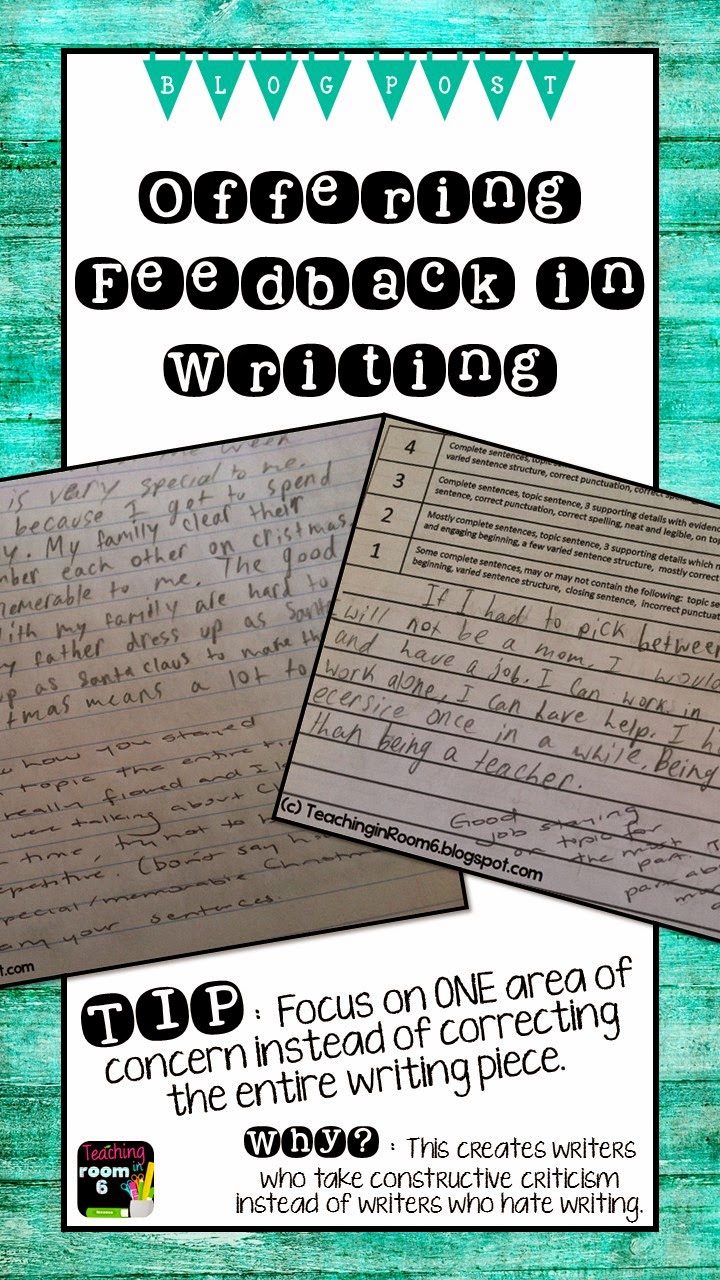 BLOG POST
Offering
Feedback in
Writing
week
is very special to me.
because I get to spend
y. My family clear their
mber each other on cristmas.
memerable to me. The good
with my family are hard to
my father dress up as Santa
up as Santa claus to make the
tmas means a lot to
how you stayed
topic the entire
really flowed and I
were talking about
time, try not to
epetitive. (Don't say
pecial/memorable Christm
your sentences.
t.com
4 Complete sentences, topic
varied sentence structure, correct punctuation, correct
3 Complete sentences, topic sentence, 3 supporting details with eviden
sentence, correct punctuation, correct spelling, neat and legible, on top
2 Mostly complete sentences, topic sentence, 3 supporting details which
and engaging beginning, a few varied sentence structure, mostly correct
1 Some complete sentences, may or may not contain the following: topic se
beginning, varied sentence structure, closing sentence, incorrect punctua
If I had to pick between
will not be a mom. I would
and have a job. I can work in
work alone, I can have help. I
ecersice once in a while. Being
than being a teacher.
Good staying
job topic for
on the most part.
(c) TeachinginRoom6.blogspot.com
TIP : Focus on ONE area of
concern instead of correcting
the entire writing piece.
Why? : This creates writers
who take constructive criticism
instead of writers who hate writing.
Teaching
room in
6